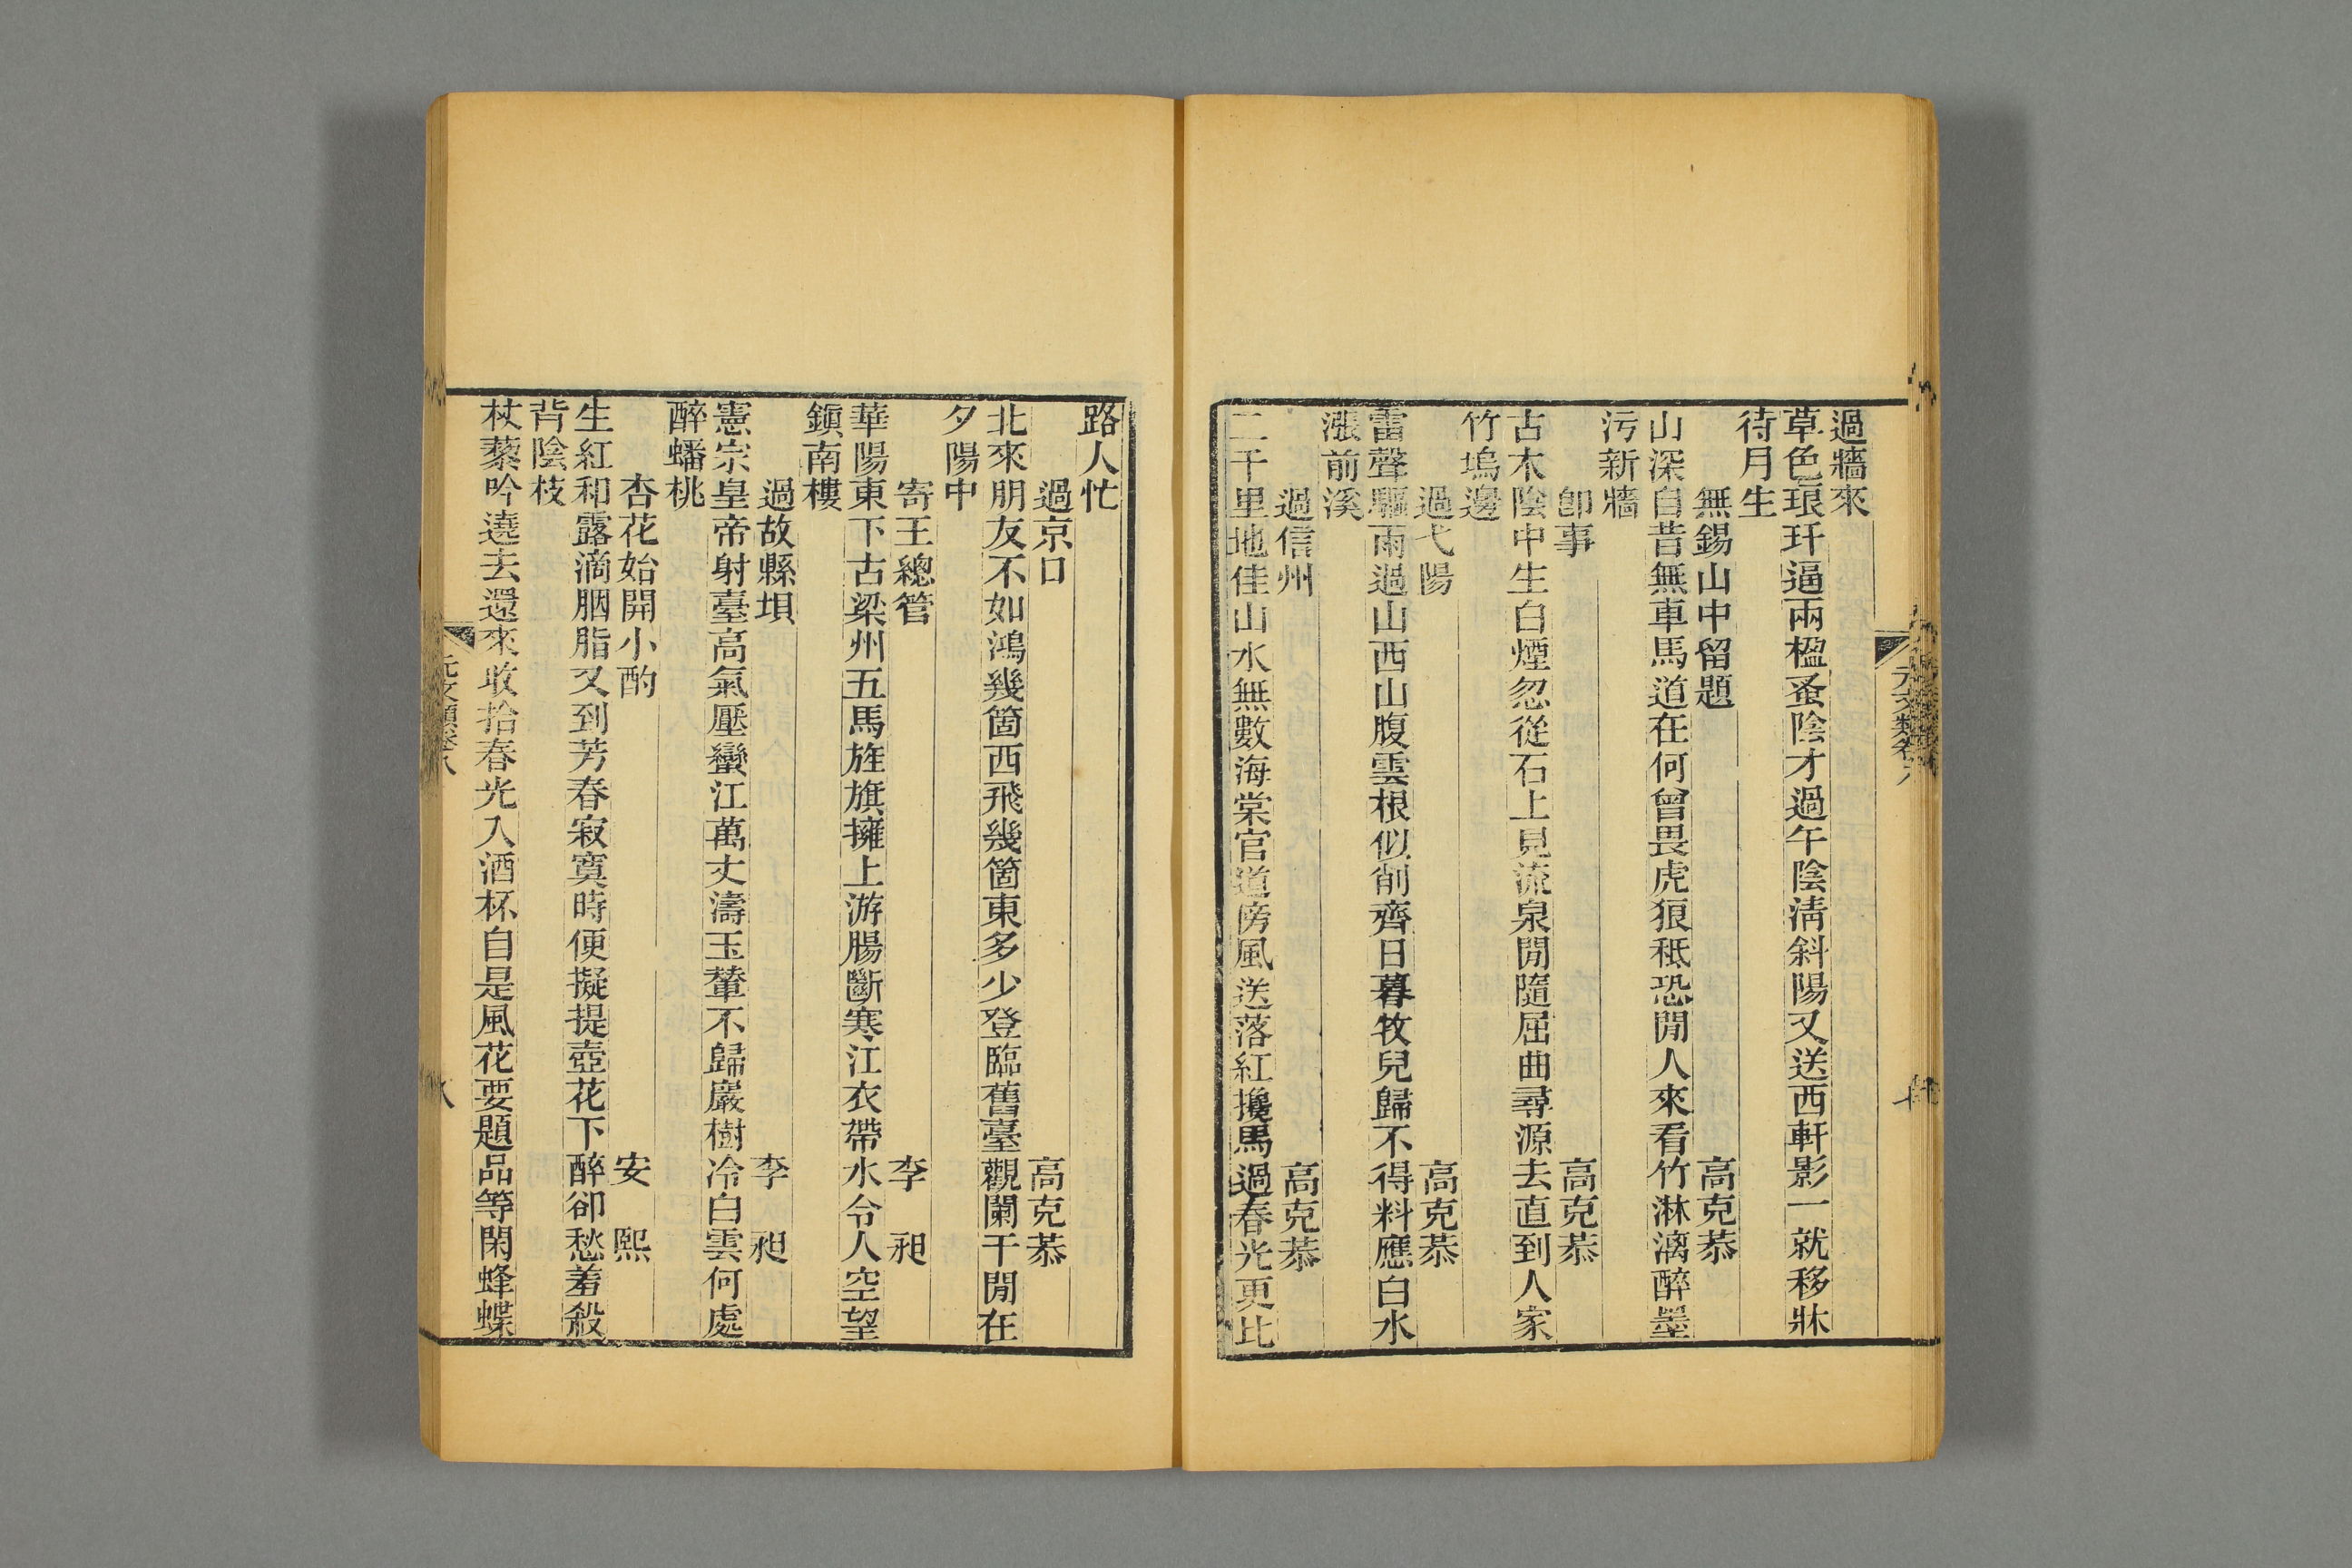 過牆來
草色琅玕逼兩楹蚤陰才過午陰淸斜陽又送西軒影一就移牀
待月生
無錫山中留題 高克恭
山深自昔無車馬道在何曾畏虎狼秪恐閒人來看竹淋漓醉墨
污新牆
卽事 高克恭
古木陰中生白煙忽從石上見流泉閒隨屈曲尋源去直到人家
竹塢邊
過弋陽 高克恭
雷聲驅雨過山西山腹雲根似削齊日暮牧兒歸不得料應白水
漲前溪
過信州 高克恭
二千里地佳山水無數海棠官道傍風送落紅攙馬過春光更比
路人忙
過京口 高克恭
北來朋友不如鴻幾箇西飛幾箇東多少登臨舊臺觀闌干閒在
夕陽中
寄王總管 李 昶
華陽東下古梁州五馬旌旗擁上游腸斷寒江衣帶水令人空望
鎭南樓
過故縣垻 李 昶
憲宗皇帝射臺高氣壓蠻江萬丈濤玉輦不歸巖樹冷白雲何處
醉蟠桃
杏花始開小酌 安 熙
生紅和露滴胭脂又到芳春寂寞時便擬提壺花下醉卻愁羞殺
背陰枝
杖藜吟遶去還來收拾春光入酒杯自是風花要題品等閑蜂蝶
元文類卷八